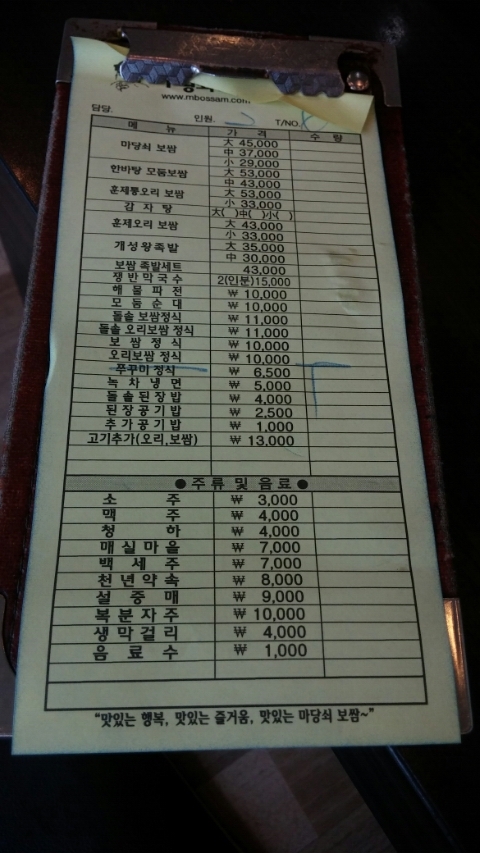 www.mbossam.com
담당. 인원. T/NO.
메 뉴 가 격 수 량
마당쇠 보쌈 大 45,000
中 37,000
小 29,000
한바탕 모둠보쌈 大 53,000
中 43,000
훈제통오리 보쌈 大 53,000
小 33,000
감 자 탕 大( )中( )小( )
훈제오리 보쌈 大 43,000
小 33,000
개성왕족발 大 35,000
中 30,000
보쌈 족발세트 43,000
쟁반막국수 2(인분)15,000
해 물 파 전 ₩ 10,000
모 둠 순 대 ₩ 10,000
돌솥 보쌈정식 ₩ 11,000
돌솥 오리보쌈 정식 ₩ 11,000
보 쌈 정 식 ₩ 10,000
오리보쌈 정식 ₩ 10,000
쭈꾸미 정식 ₩ 6,500
녹 차 냉 면 ₩ 5,000
돌솥된장밥 ₩ 4,000
된장공기밥 ₩ 2,500
추가공기밥 ₩ 1,000
고기추가(오리,보쌈) ₩ 13,000
●주류 및 음료●
소 주 ₩ 3,000
맥 주 ₩ 4,000
청 하 ₩ 4,000
매실마을 ₩ 7,000
백 세 주 ₩ 7,000
천년약속 ₩ 8,000
설 중 매 ₩ 9,000
복분자주 ₩ 10,000
생막걸리 ₩ 4,000
음 료 수 ₩ 1,000
“맛있는 행복, 맛있는 즐거움, 맛있는 마당쇠 보쌈~”